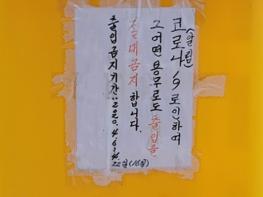 (알림)
코로나19로 인하여
그 어떤 용무로도 출입을
절대금지 합니다.
출입금지기간: 2020. 4. 6 ~ 4. 22일